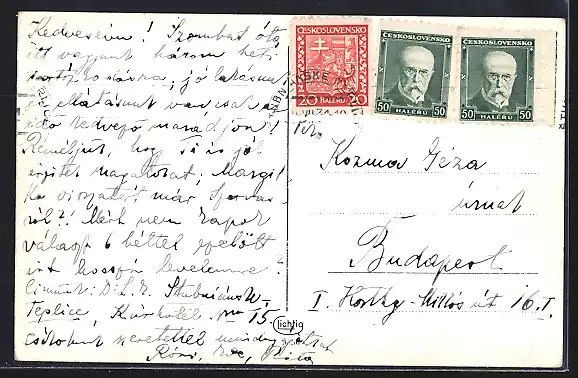 Kedveseim! Szombat óta
itt vagyunk három heti
tartózkodásra, jó lakásunk
és ellátásunk van, csak az
idő kedvező maradjon!
Reméljük, hogy ti is jól
érzitek magatokat. Margit
ka visszatért már
ról?! Miért nem kapok
választ 6 héttel ezelőtt
írt hosszú levelemre?
Címünk: D. L. R.
Teplice, Kurhotel 15
csókol szeretettel mindnyájatokat
Róni,
ČESKOSLOVENSKO
20 HALÉŘŮ 20
ČESKOSLOVENSKO
50 HALÉŘŮ 50
ČESKOSLOVENSKO
50 HALÉŘŮ 50
Kozma Géza
úrnak
Budapest
I. Horthy Miklós út 16. I.
lichtig